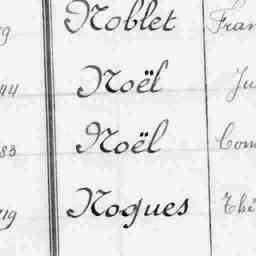 9 Noblet Fran
44 Noël Ju
83 Noël Com
719 Nogues Thé